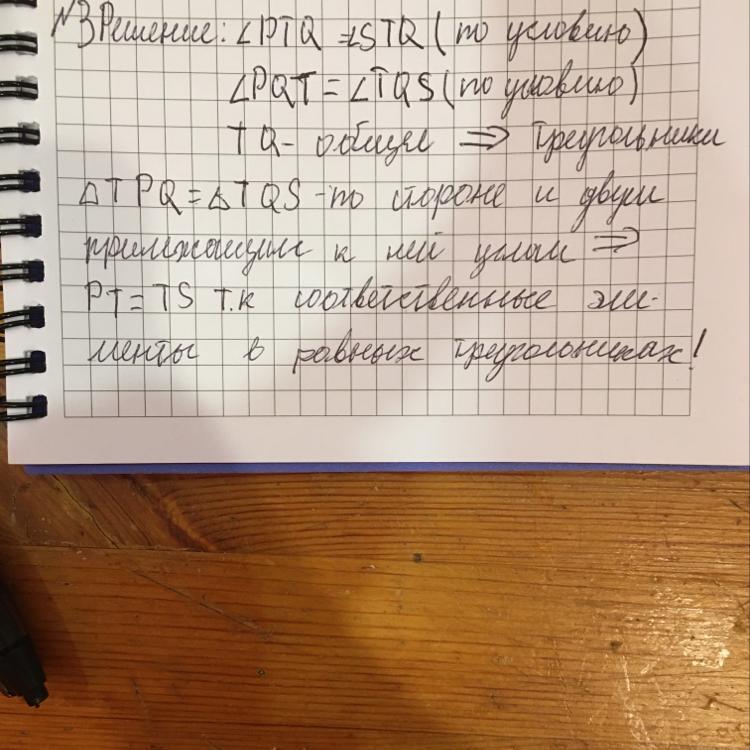 №3 Решение: ∠PTQ = ∠STQ (по условию)
∠PQT = ∠TQS (по условию)
TQ - общая ⇒ треугольники
△TPQ = △TQS - по стороне и двум
прилежащим к ней углам ⇒
PT = TS т.к соответственные эле-
менты в равных треугольниках!